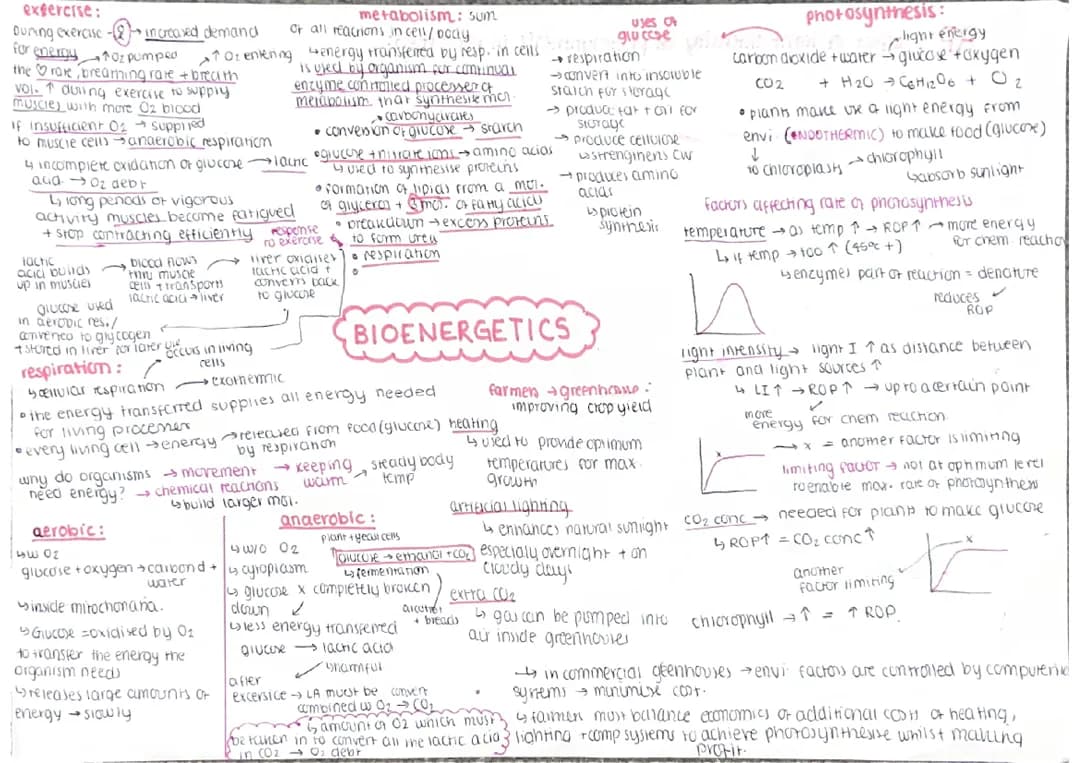 exfercise:
During exercise → increased demand
for energy → ↑O2 pumped ↑ O2 entering
the ♡ rate, breathing rate + breath
vol. ↑ during exercise to supply
muscles with more O2 blood
if insufficient O2 → supplied
to muscle cells → anaerobic respiration
↳ incomplete oxidation of glucose → lactic
acid → O2 debt
↳ long periods of vigorous
activity muscles become fatigued
+ stop contracting efficiently
response
to exercise
lactic
acid builds
up in muscles
→ blood flows
thru muscle
cells + transports
lactic acid → liver
→ liver oxidises
lactic acid +
converts back
to glucose
glucose used
in aerobic res./
converted to glycogen
+ stored in liver for later use
metabolism: sum
of all reactions in cell/body
↳ energy transferred by resp. in cells
is used by organism for continual
enzyme controlled processes of
metabolism that synthesise mol.
→ carbohydrates
• conversion of glucose → starch
• glucose + nitrate ions → amino acids
↳ used to synthesise proteins
• formation of lipids from a mol.
of glycerol + 3 mol. of fatty acids
• breakdown → excess proteins
to form urea
• respiration
uses of
glucose
→ respiration
→ convert into insoluble
starch for storage
→ produce fat + oil for
storage
→ produce cellulose
↳ strengthens CW
→ produces amino
acids
↳ protein
synthesis
photosynthesis:
light energy
carbon dioxide + water → glucose + oxygen
CO2 + H2O → C6H12O6 + O2
• plants make use a light energy from
envi. (ENDOTHERMIC) to make food (glucose)
↓
to chloroplasts → chlorophyll
↳ absorb sunlight
factors affecting rate of photosynthesis
temperature → as temp ↑ → ROP ↑ → more energy
for chem reaction
↳ if temp → too ↑ (45°c +)
↳ enzymes part of reaction = denature
reduces
ROP
light intensity → light I ↑ as distance between
plant and light sources ↑
↳ LI ↑ → ROP ↑ → up to a certain point
more
energy for chem reaction
x
→ x = another factor is limiting
limiting factor → not at optimum level
to enable max. rate of photosynthesis
CO2 conc → needed for plants to make glucose
↳ ROP ↑ = CO2 conc ↑
x
another
factor limiting
chlorophyll → ↑ = ↑ ROP.
BIOENERGETICS
respiration:
occurs in living
cells
↳ cellular respiration → exothermic
• the energy transferred supplies all energy needed
for living processes
• every living cell → energy → released from food (glucose)
by respiration
why do organisms
need energy?
→ movement
→ chemical reactions
↳ build larger mol.
→ keeping
warm
→ steady body
temp
aerobic:
↳ w O2
glucose + oxygen → carbond +
water
↳ inside mitochondria.
↳ Glucose = oxidised by O2
to transfer the energy the
organism needs
↳ releases large amounts of
energy → slowly
anaerobic:
↳ w/o O2
↳ cytoplasm
↳ glucose x completely broken
down
↳ less energy transferred
plant + yeast cells
glucose → ethanol + CO2
↳ fermentation
alcohol
+ breads
glucose → lactic acid
↳ harmful
after
excersice → LA must be convert
combined w O2 → CO2
↳ amount of O2 which must
be taken in to convert all the lactic acid
in CO2 → O2 debt
farmers → greenhouse:
improving crop yield
heating
↳ used to provide optimum
temperatures for max.
growth
artificial lighting
↳ enhances natural sunlight
especialy overnight + on
cloudy days
extra CO2
↳ gas can be pumped into
air inside greenhouses
↳ in commercial greenhouses → envi factors are controlled by computerise
systems → minimise cost.
↳ farmers must balance economics of additional costs of heating,
lighting + comp systems to achieve photosynthesise whilst making
profit.